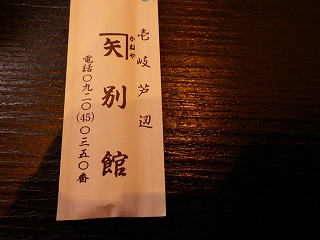 壱岐芦辺
かねや
矢別館
電話〇九二〇(45)〇三五〇番